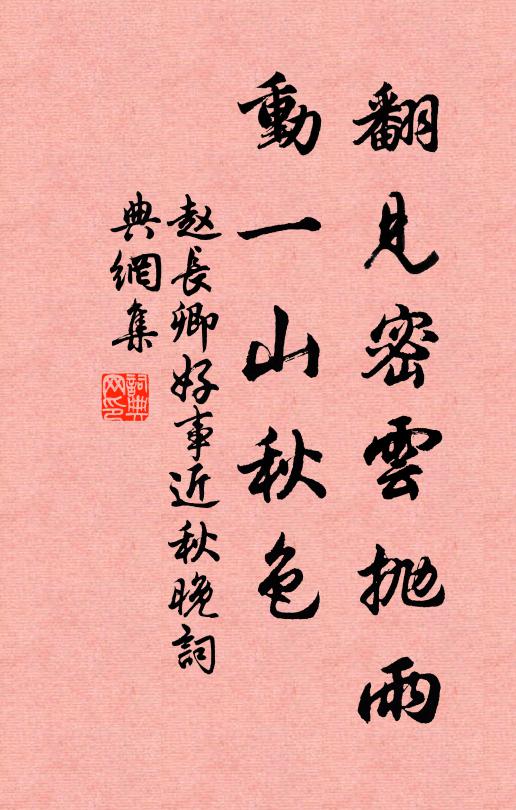 翻見密雲拋雨
動一山秋色
赵長卿好事近秋晚詞
典網集
詞典網印